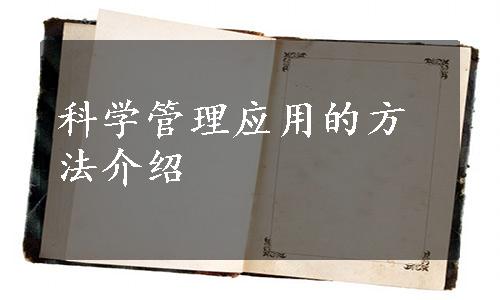 科学管理应用的方
法介绍